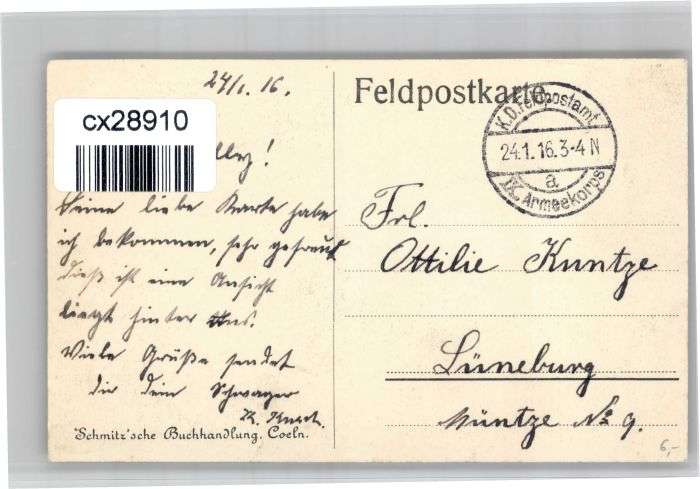 24/1. 16.
cx28910
Deine liebe Karte habe
ich bekommen, sehr gefreut
dieß ist eine Ansicht
liegt hinter uns.
Viele Grüße sendet
dir dein Schwager
Schmitz'sche Buchhandlung. Coeln.
Feldpostkarte
K.D. Feldpostamt
24.1.16.3-4 N
a
IX. Armeekorps
Frl.
Ottilie Kuntze
Lüneburg
Müntze No 9.
6,-